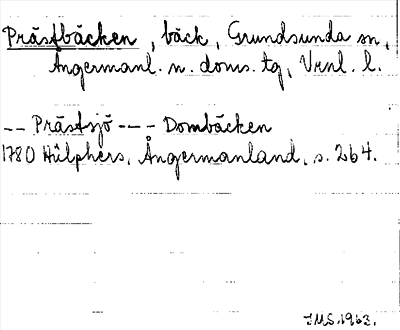 Prästbäcken, bäck, Grundsunda sn,
Ångermanl. n. doms. tg, Vrnl. l.
-- Prästsjö --- Dombäcken
1780 Hülphers, Ångermanland, s. 264.
JMS 1963.